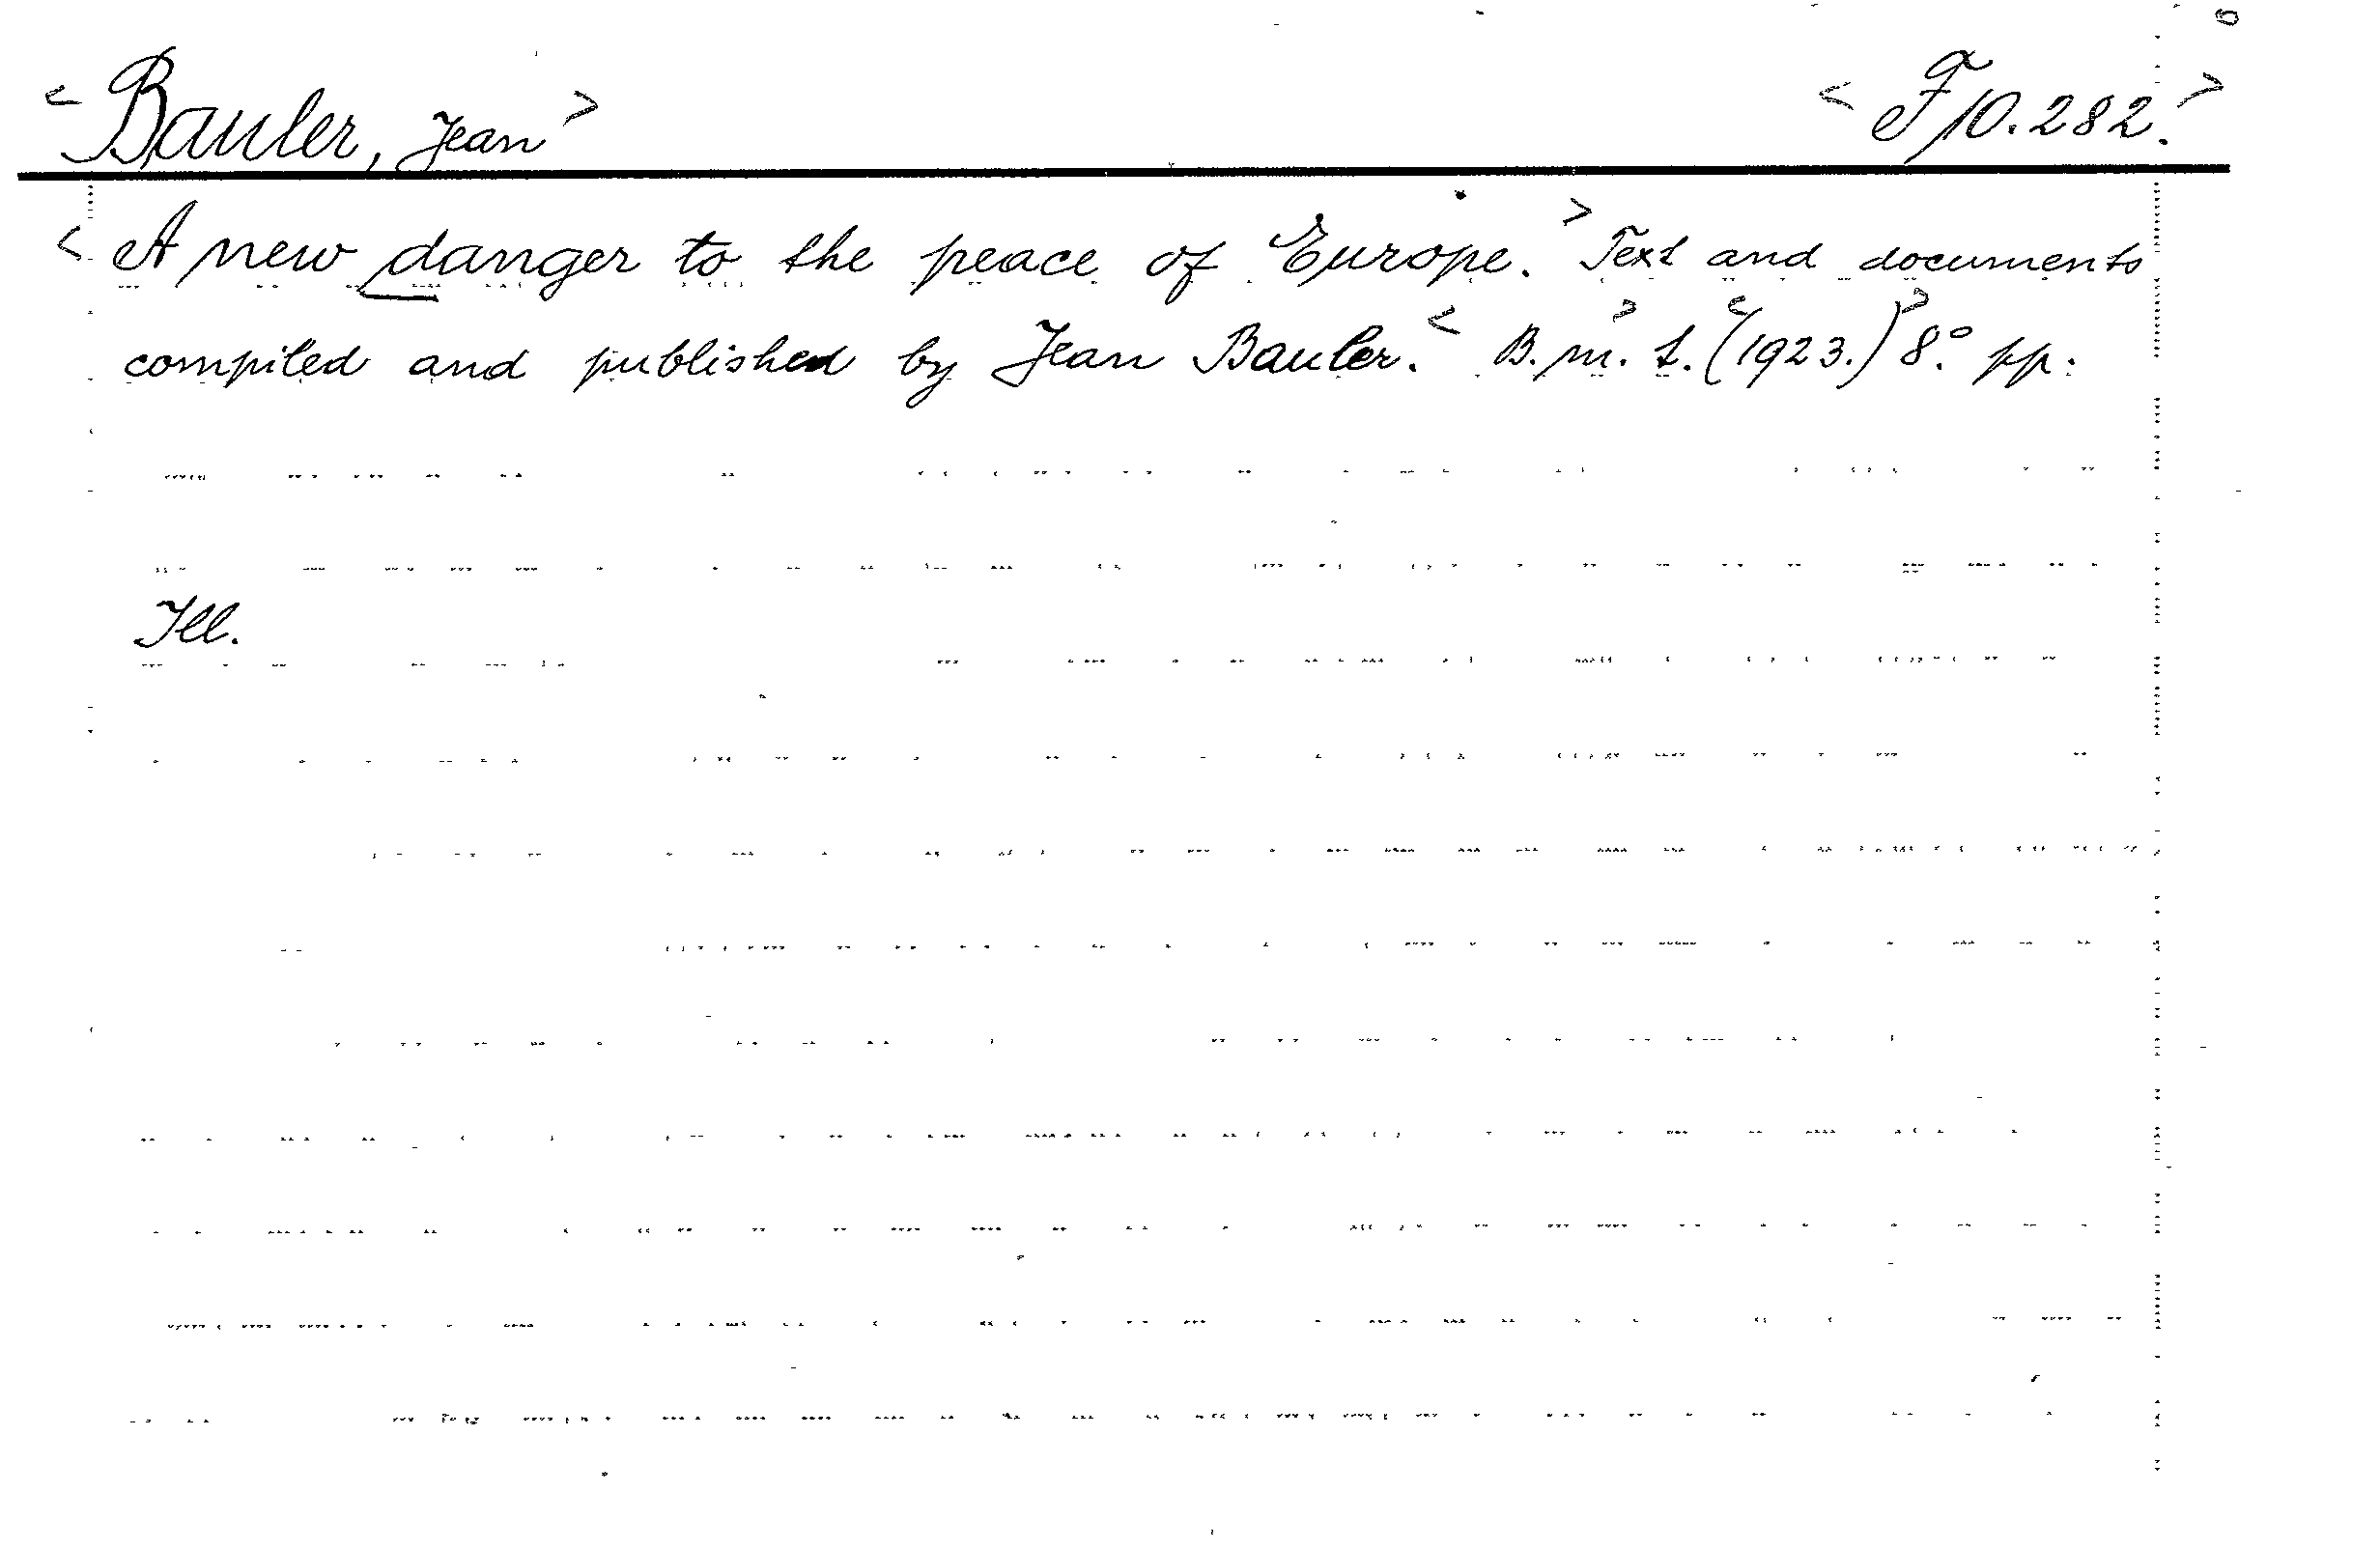 < Bauler, Jean > < F 10.282. >
< A new danger to the peace of Europe. > Text and documents
compiled and published by Jean Bauler. < B. m. t. > < (1923.) > 8.° pp.
Ill.